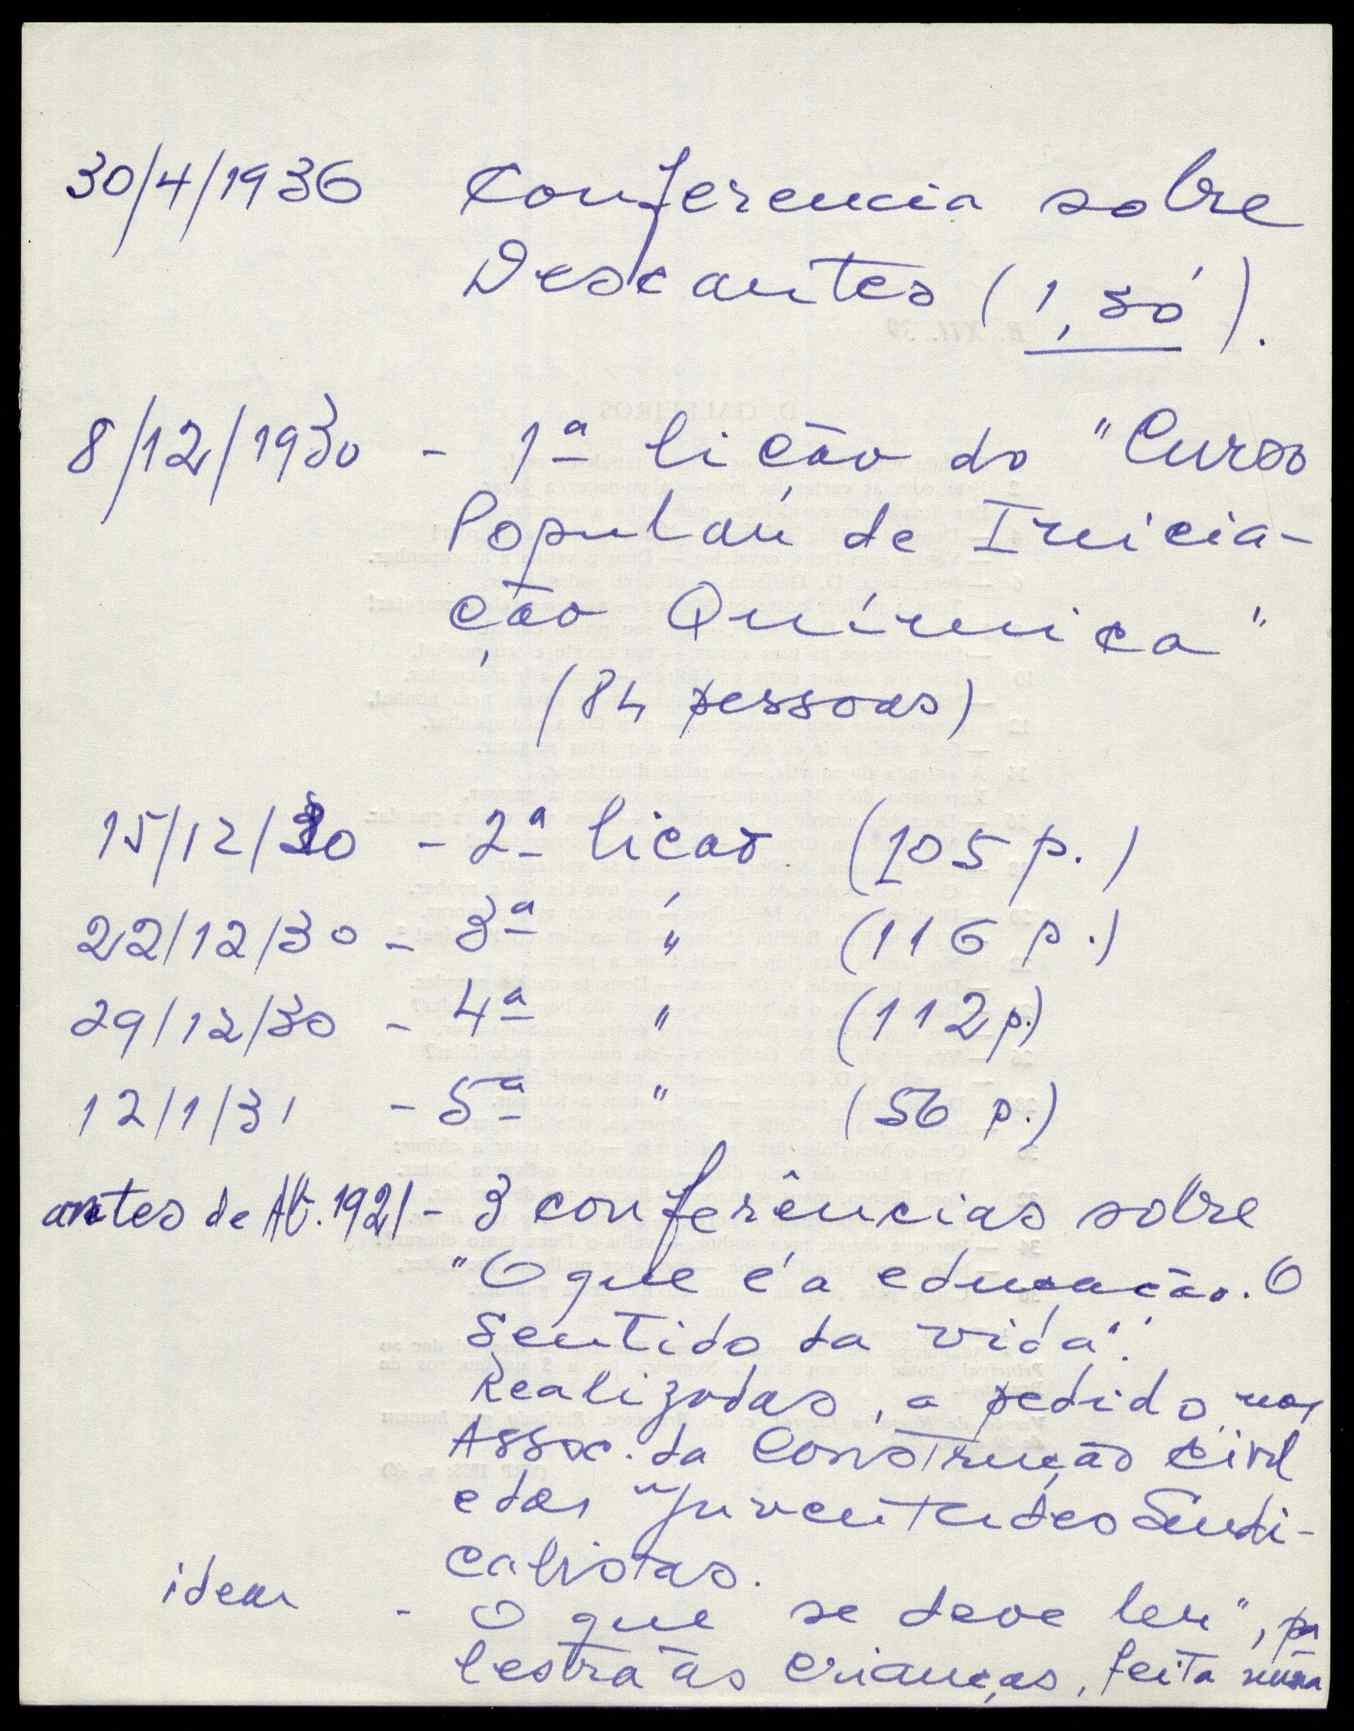 30/4/1936 Conferencia sobre
Descartes (1, só).
8/12/1930 - 1ª lição do "Curso
Popular de Inicia-
ção Química"
(84 pessoas)
15/12/30 - 2ª licão (105 p.)
22/12/30 - 3ª " (116 p.)
29/12/30 - 4ª " (112 p.)
12/1/31 - 5ª " (56 p.)
antes de Ab. 1921 - 3 conferências sobre
"O que é a educação. O
Sentido da vida".
Realizadas, a pedido, nas
Assoc. da Construção Civil
e das "Juventudes Sindi-
calistas.
idem - O que se deve ler", pa
lestra às crianças, feita numa